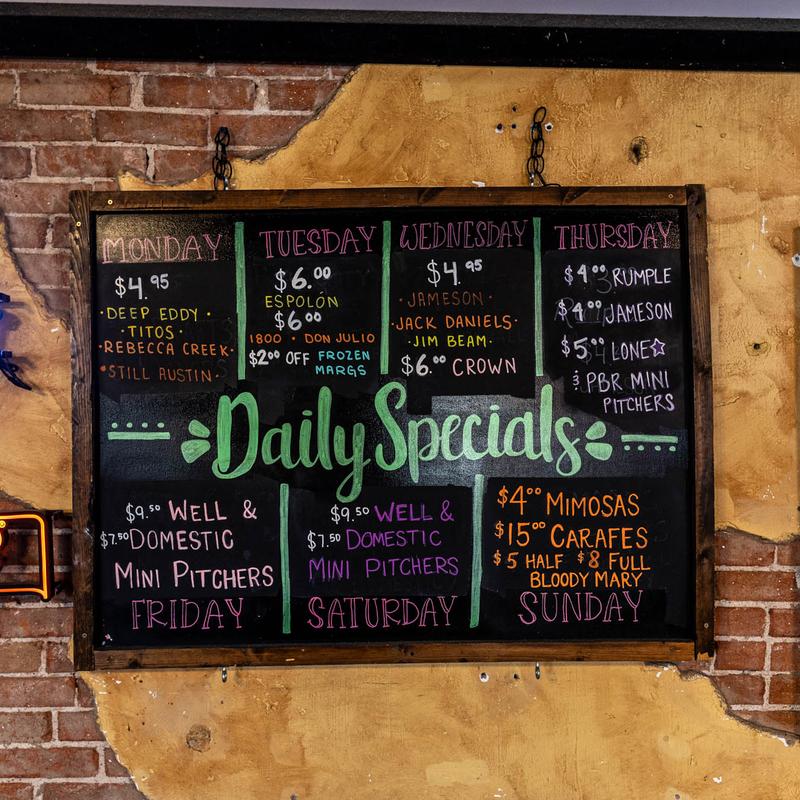 MONDAY
$4.95
·DEEP EDDY·
·TITOS·
·REBECCA CREEK·
·STILL AUSTIN·
TUESDAY
$6.00
ESPOLÓN
$6.00
1800 · DON JULIO
$2.00 OFF FROZEN
MARGS
WEDNESDAY
$4.95
·JAMESON·
·JACK DANIELS·
·JIM BEAM·
$6.00 CROWN
THURSDAY
$4.00 RUMPLE
$4.00 JAMESON
$5.00 LONE☆
& PBR MINI
PITCHERS
Daily Specials
$9.50 WELL &
$7.50 DOMESTIC
MINI PITCHERS
FRIDAY
$9.50 WELL &
$7.50 DOMESTIC
MINI PITCHERS
SATURDAY
$4.00 MIMOSAS
$15.00 CARAFES
$5 HALF $8 FULL
BLOODY MARY
SUNDAY